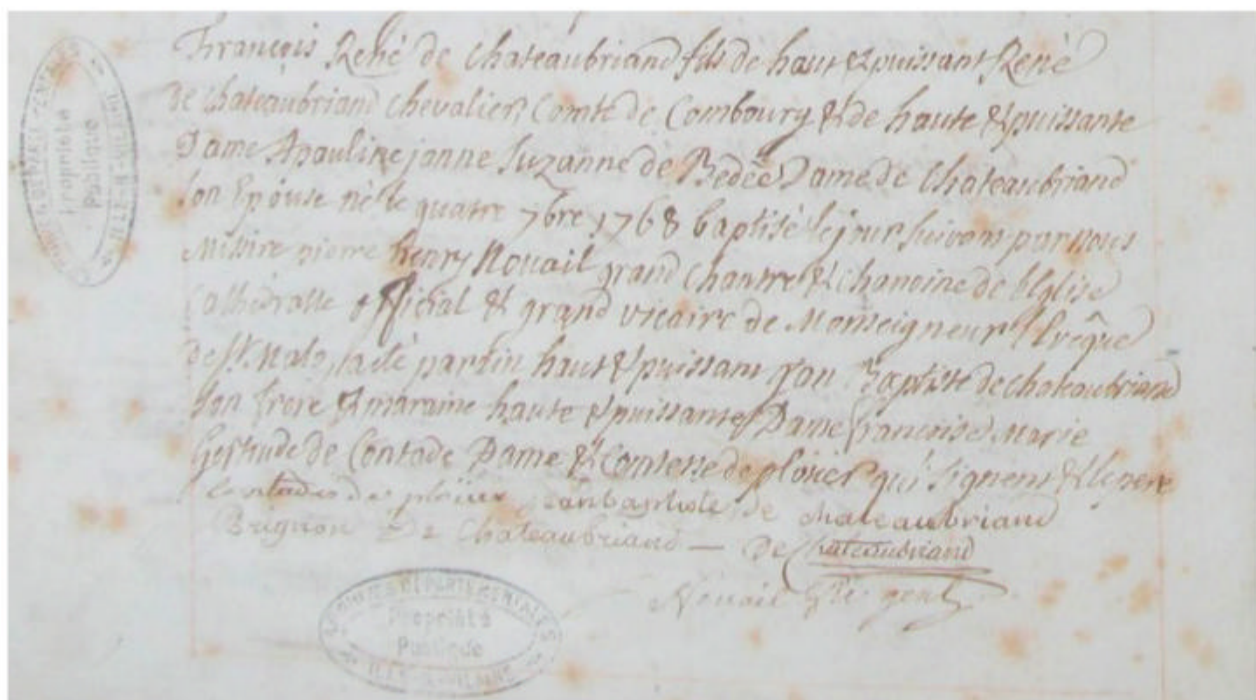 François René de Chateaubriand fils de haut & puissant René
de Chateaubriand Chevalier, Comte de Combourg & de haute & puissante
Dame Apauline janne Suzanne de Bedée Dame de Chateaubriand
son Epouse né le quatre 7bre 1768 baptisé le jour suivant par nous
Missire pierre henry Nouail grand Chantre & Chanoine de l'Eglise
Cathedralle official & grand vicaire de Monseigneur l'Evêque
de St. Malo, a été parrin haut & puissant jan Baptiste de chateaubriand
son frere & maraine haute & puissante Dame francoise Marie
Gertrude de Contade Dame & Comtesse de plouer qui signent & le pere
contades de plouer jean baptiste de chateaubriand
Brignon De Chateaubriand — De Chateaubriand
Nouail
ARCHIVES DÉPARTEMENTALES
Propriété
Publique
ILLE-&-VILAINE
ARCHIVES DÉPARTEMENTALES
Propriété
Publique
ILLE-&-VILAINE